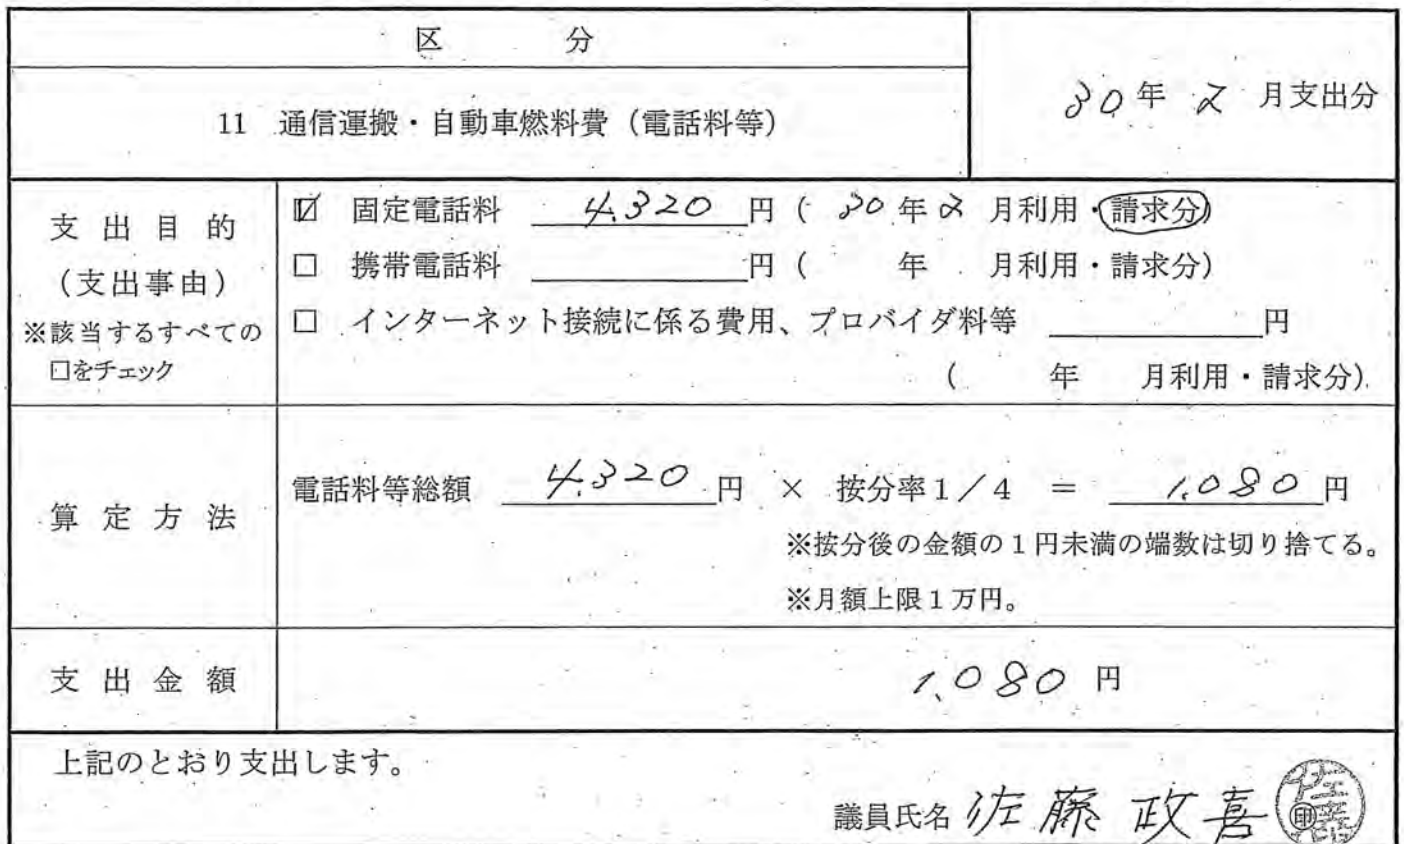 区 分
11 通信運搬・自動車燃料費（電話料等）
30年 2 月支出分
支出目的
（支出事由）
※該当するすべての
□をチェック
☑ 固定電話料 4,320 円（ 30年2 月利用・請求分）
□ 携帯電話料 円（ 年 月利用・請求分）
□ インターネット接続に係る費用、プロバイダ料等 円
（ 年 月利用・請求分）
算定方法
電話料等総額 4,320 円 × 按分率1／4 ＝ 1,080 円
※按分後の金額の1円未満の端数は切り捨てる。
※月額上限1万円。
支出金額
1,080 円
上記のとおり支出します。
議員氏名 佐藤 政喜 ㊞